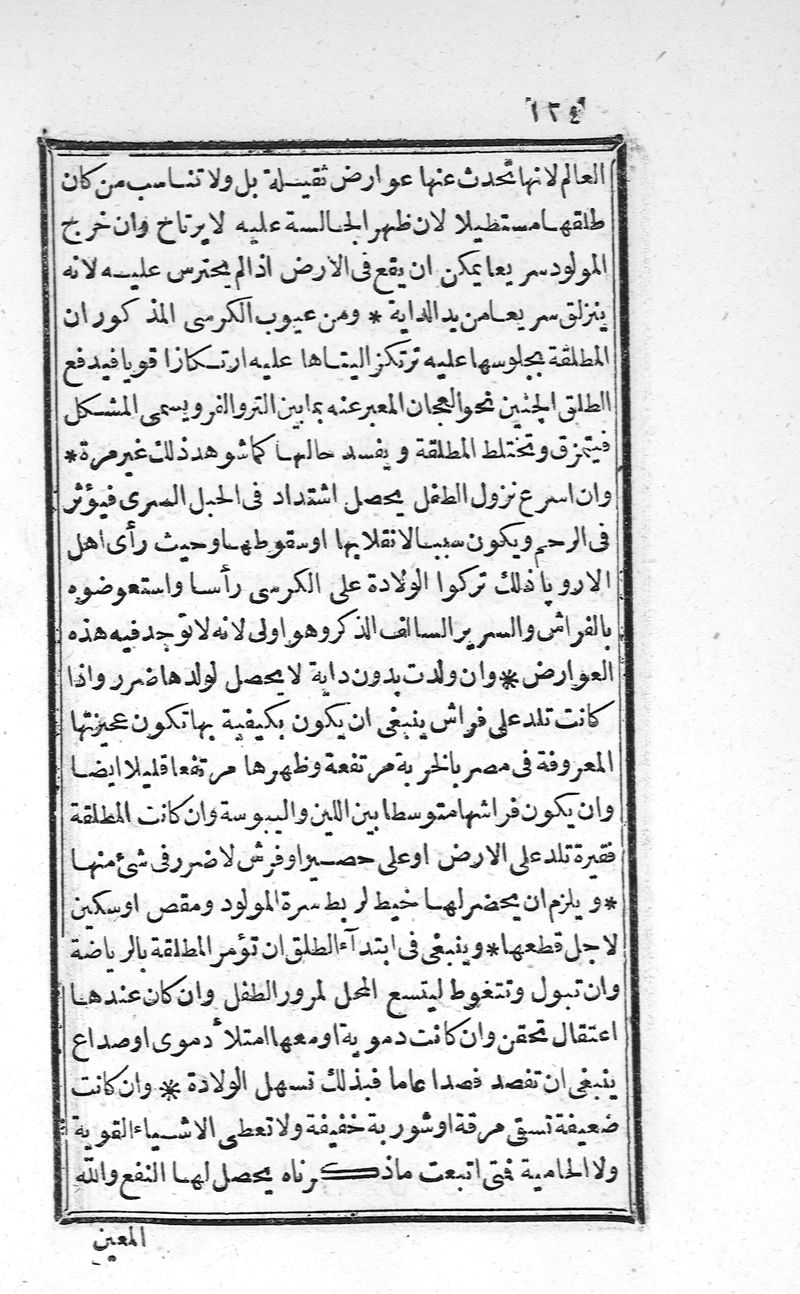 ١٢٤
العالم لانها تحدث عنها عوارض ثقيلة بل ولا تناسب من كان
طلقها مستطيلا لان ظهر الجالسة عليه لا يرتاح وان خرج
المولود سريعا يمكن ان يقع فى الارض اذا لم يحترس عليه لانه
ينزلق سريعا من يد الداية * ومن عيوب الكرسى المذكور ان
المطلقة بجلوسها عليه ترتكز اليتاها عليه ارتكازا قويا فيدفع
الطلق الجنين نحو العجان المعبر عنه بما بين التر والفر ويسمى المشكل
فيتمزق وتختلط المطلقة ويفسد حالها كما شوهد ذلك غير مرة *
وان اسرع نزول الطفل يحصل اشتداد فى الحبل السرى فيؤثر
فى الرحم ويكون سببا لانقلابها اوسقوطها وحيث رأى اهل
الاروپا ذلك تركوا الولادة على الكرسى رأسا واستعوضوه
بالفراش والسرير السالف الذكر وهو اولى لانه لا توجد فيه هذه
العوارض * وان ولدت بدون داية لا يحصل لولدها ضرر واذا
كانت تلد على فراش ينبغى ان يكون بكيفية بها تكون عجيزتها
المعروفة فى مصر بالخربة مرتفعة وظهرها مرتفعا قليلا ايضا
وان يكون فراشها متوسطا بين اللين واليبوسة وان كانت المطلقة
فقيرة تلد على الارض اوعلى حصير اوفرش لا ضرر فى شئ منها
* ويلزم ان يحضر لها خيط لربط سرة المولود ومقص اوسكين
لاجل قطعها * وينبغى فى ابتدآء الطلق ان تؤمر المطلقة بالرياضة
وان تبول وتتغوط ليتسع المحل لمرور الطفل وان كان عندها
اعتقال تحقن وان كانت دموية اومعها امتلأ دموى اوصداع
ينبغى ان تفصد فصدا عاما فبذلك تسهل الولادة * وان كانت
ضعيفة تسقى مرقة اوشوربة خفيفة ولا تعطى الاشياء القوية
ولا الحامية فمتى اتبعت ما ذكرناه يحصل لها النفع والله
المعين